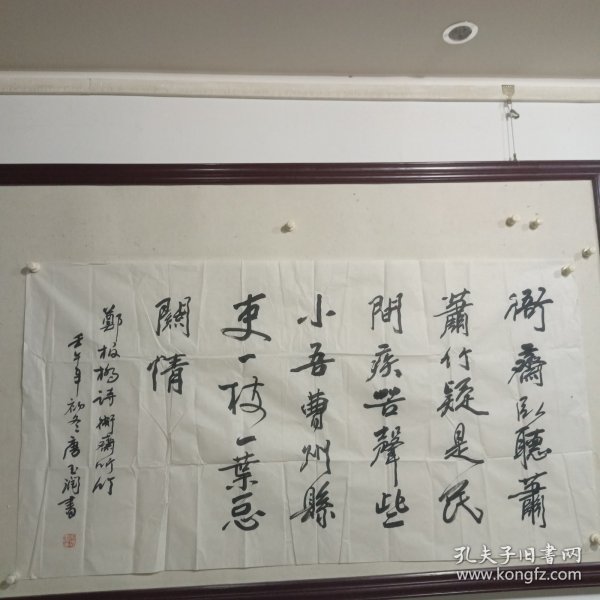 衙齋臥聽蕭
蕭竹疑是民
間疾苦聲些
小吾曹州縣
吏一枝一葉總
關情
鄭板橋詩衙齋听竹
壬午年初冬唐玉潤書
孔夫子旧书网
www.kongfz.com